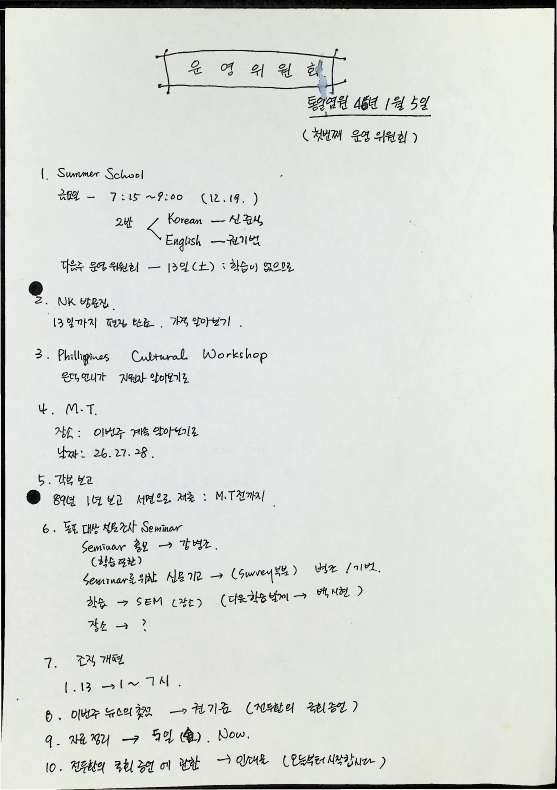 운영위원회
통일염원 46년 1월 5일
(첫번째 운영위원회)
1. Summer School
금요일 - 7:15 ~ 9:00 (12. 19. )
2반 Korean - 신준식
English - 권기범
다음주 운영위원회 - 13일(土) : 학습이 없으므로
2. NK 방문집.
13일까지 편집 완료. 가격 알아보기.
3. Phillipines Cultural Workshop
언니가 지원자 알아보기로
4. M.T.
장소: 이번주 계속 알아보기로
날짜: 26. 27. 28.
5. 각부 보고
89년 1년 보고 서면으로 제출 : M.T전까지
6. 동포 대상 설문조사 Seminar
Seminar 홍보 → 강병조.
(학습 또한)
Seminar을 위한 신문 기고 → (Survey 부분) 병조 / 기범.
학습 → SEM (장소) (다음 학습 발제 → 백시현)
장소 → ?
7. 조직 개편
1. 13 → 1 ~ 7시.
8. 이번주 뉴스의 촛점 → 권기범 (전두환의 국회증언)
9. 자료 정리 → 5일 (金). Now.
10. 전두환의 국회 증언에 관한 → (오늘부터 시작합시다)